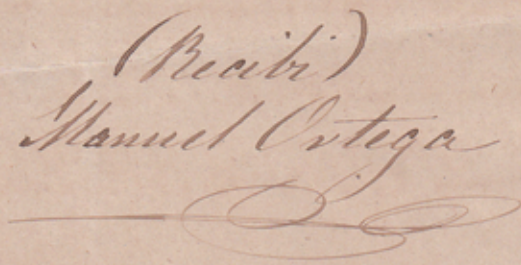 (Recibi)
Manuel Ortega